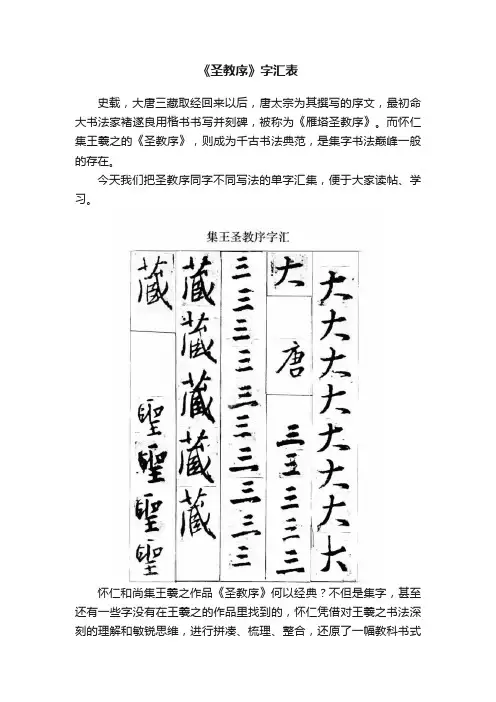 《圣教序》字汇表
史载，大唐三藏取经回来以后，唐太宗为其撰写的序文，最初命
大书法家褚遂良用楷书书写并刻碑，被称为《雁塔圣教序》。而怀仁
集王羲之的《圣教序》，则成为千古书法典范，是集字书法巅峰一般
的存在。
今天我们把圣教序同字不同写法的单字汇集，便于大家读帖、学
习。
集王圣教序字汇
大大大大大大大大
大唐三三三三三
三三三三三三三三三三
藏藏藏藏藏
藏聖聖聖聖
怀仁和尚集王羲之作品《圣教序》何以经典？不但是集字，甚至
还有一些字没有在王羲之的作品里找到的，怀仁凭借对王羲之书法深
刻的理解和敏锐思维，进行拼凑、梳理、整合，还原了一幅教科书式